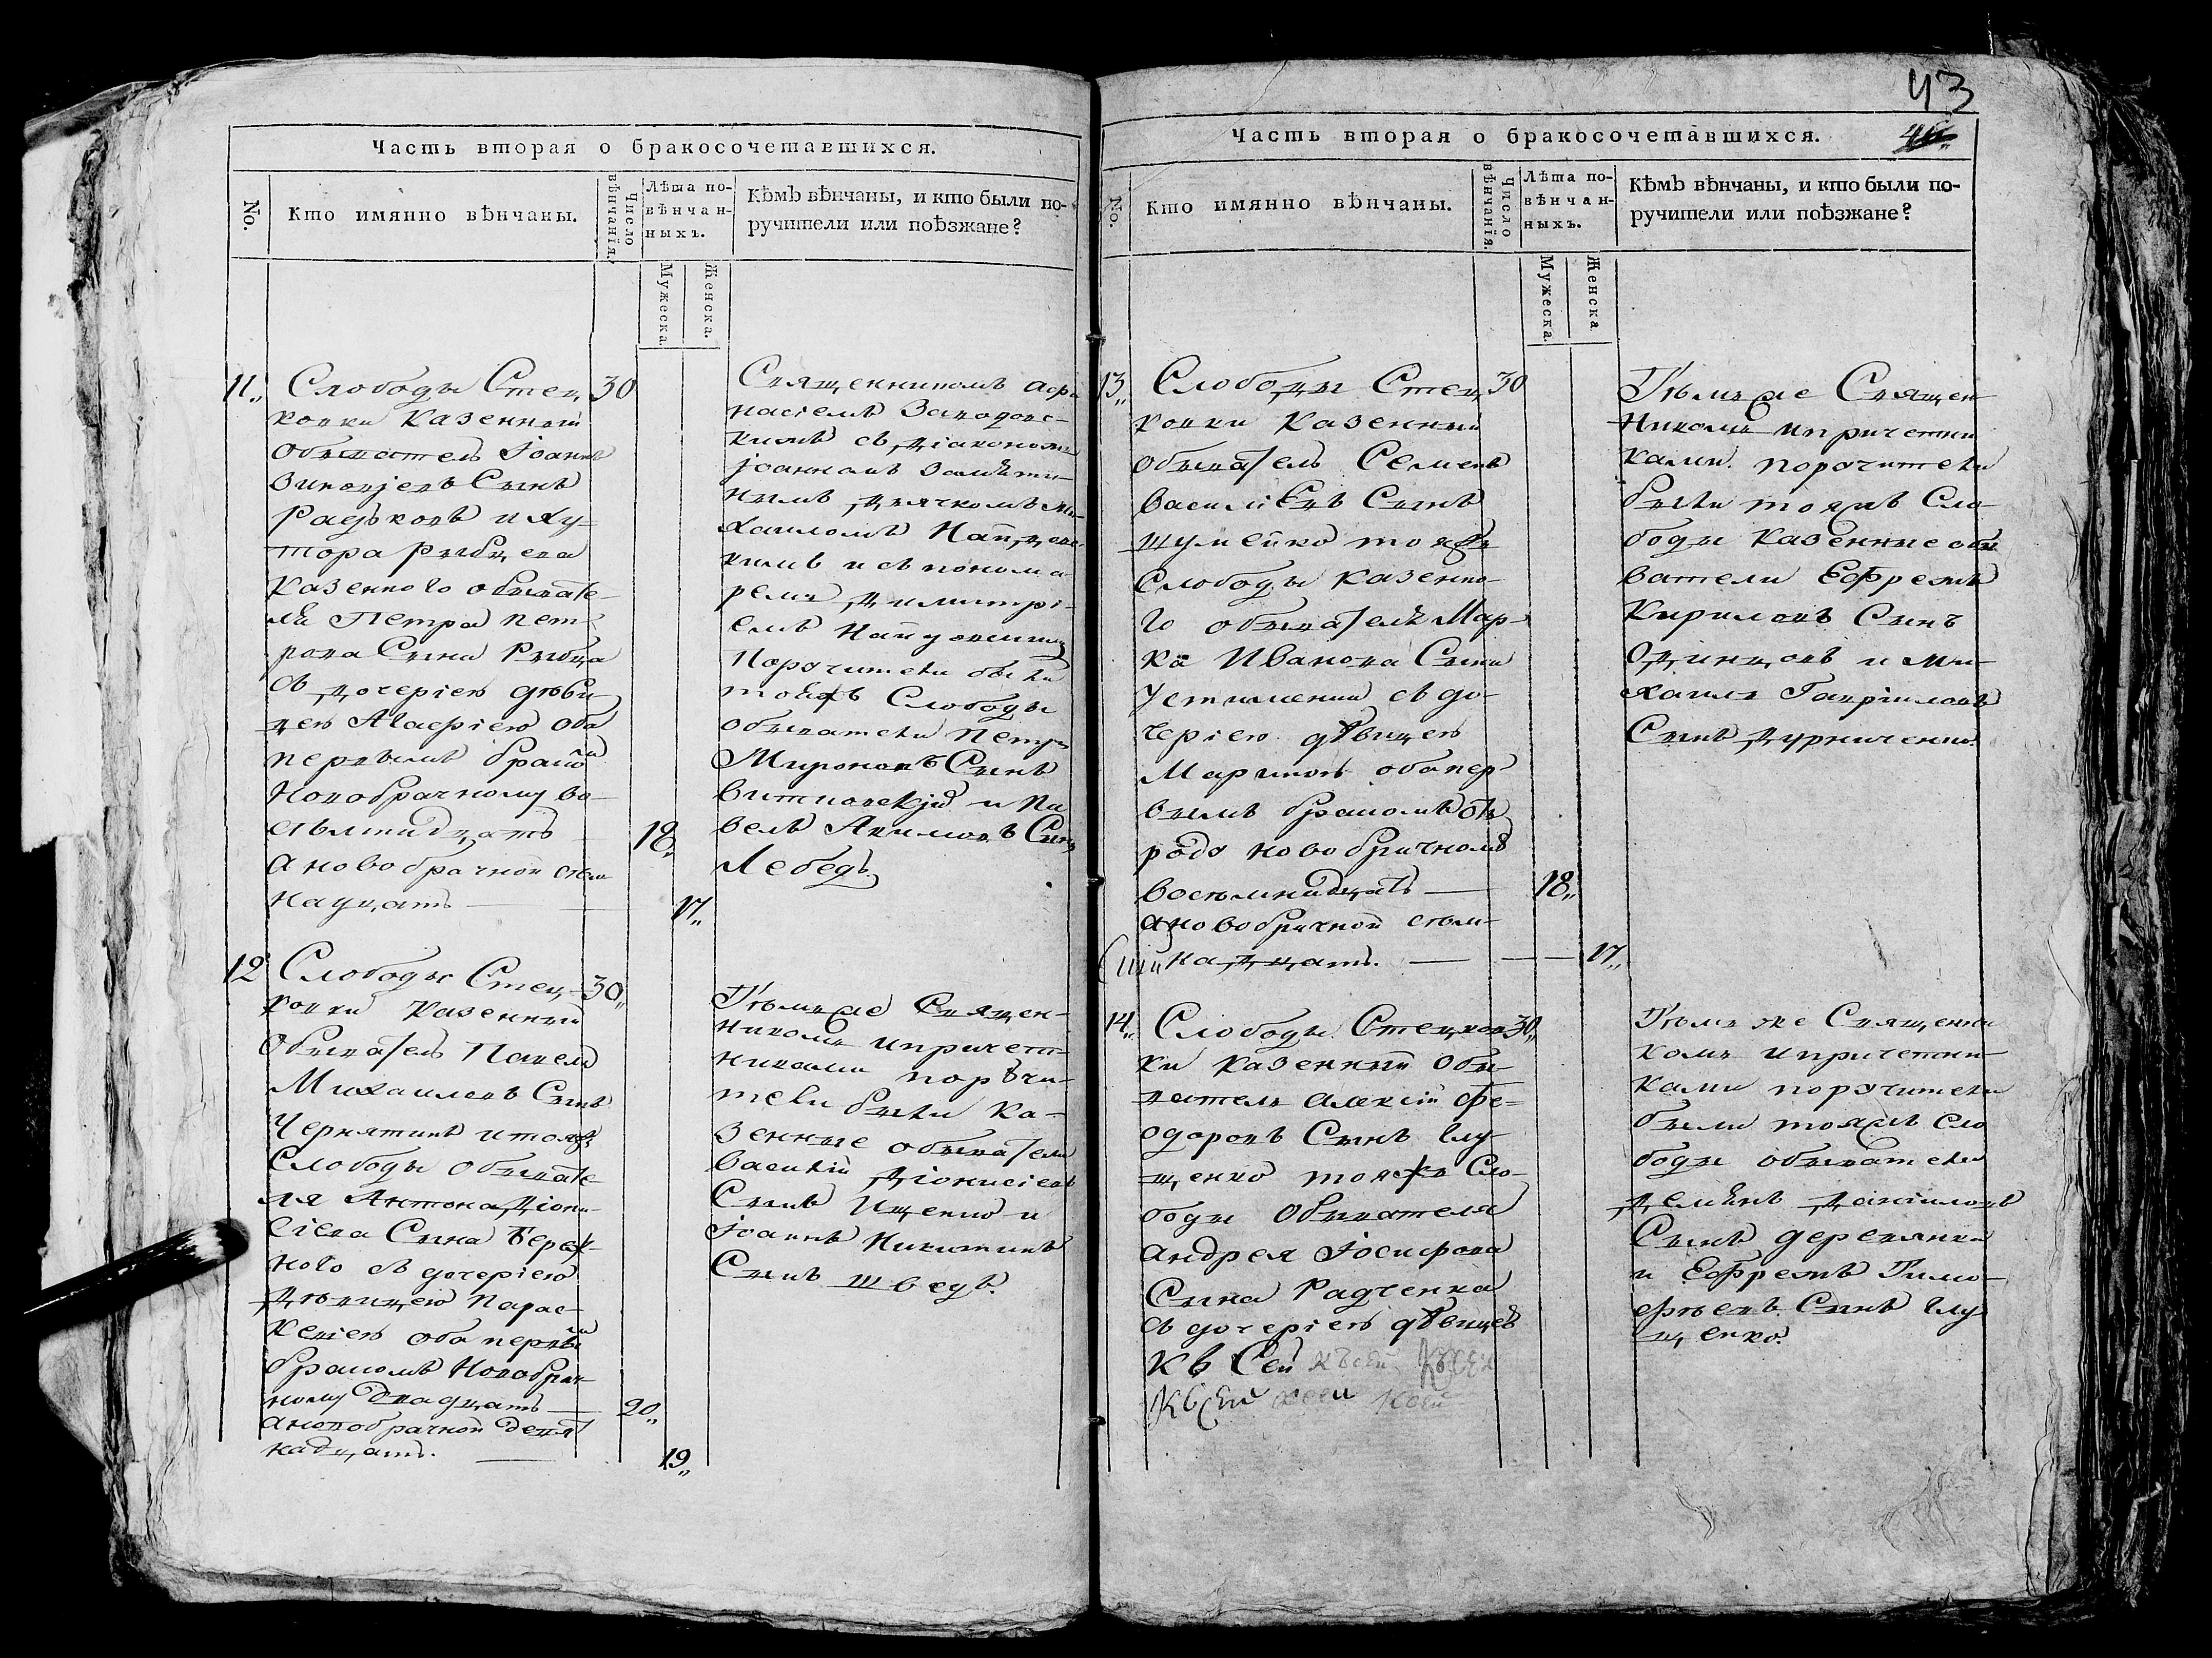 Часть вторая о бракосочетавшихся.
No.
Кто имянно вѣнчаны.
Число вѣнчанія.
Лѣта по-
вѣнчан-
ныхъ.
Мужеска.
Женска.
Кѣмъ вѣнчаны, и кто были по-
ручители или поѣзжане?
11„
Слободы Стец
ковки казенный
обыватель Іоаннъ
Зиновіевъ Сынъ
Радковъ и ху
тора рыбцева
казенного обывате
ля Петра пет
рова Сына Рыбца
съ дочеріею дѣви
цею Агафіею оба
первымъ
Новобрачному во
семнадцать
а новобрачной семь
надцать
30
18„
17„
Священникомъ Афа
насіемъ
съ діакономъ
Іоанномъ
дьячкомъ Ми
хаиломъ
и съ понома
ремъ димитрі
емъ
Порочители были
тояжъ Слободы
обыватели петръ
Мироновъ Сынъ
и Па
велъ Акимовъ Сынъ
Лебедь
12
Слободы Стец
ковки казенный
обыватель Павелъ
Михаиловъ Сынъ
Чернятинъ и тояжъ
Слободы обывате
ля Антона Діони
сіева Сына Береж
ного съ дочеріею
дѣвицею Парас
кевіею оба первы
бракомъ Новобрач
ному двадцать
а новобрачной девят
надцать.
30„
20„
19„
Тѣмже Священ
никомъ и причет
никами порѹчи
тели были ка
зенные обыватели
Василій Діонисіевъ
Сынъ Ищенко и
Іоаннъ Никитинъ
Сынъ шведъ.
43
Часть вторая о бракосочетавшихся.
No.
Кто имянно вѣнчаны.
Число вѣнчанія.
Лѣта по-
вѣнчан-
ныхъ.
Мужеска.
Женска
Кѣмъ вѣнчаны, и кто были по-
ручители или поѣзжане?
13„
Слободы Стец
ковки казенный
обыватель Семенъ
Василіевъ Сынъ
шумейко тояжъ
Слободы казенно
го обывателя Мар
ка Иванова Сына
Устименка съ до
черіею дѣвицею
Мариною оба пер
вымъ бракомъ отъ
родѹ новобрачномѹ
восемнадцать
а новобрачной семь
надцать.
30
18„
17„
Тѣмже Священ
никомъ и причетни
ками. порочители
были тояжъ Сло
боды казенные обы
ватели Ефремъ
Кириловъ Сынъ
Одинцовъ и Ми
хаилъ Гавріиловъ
Сынъ
14„
Слободы Стецков
ки казенный обы
ватель алексій Фе
одоровъ Сынъ глу
щенко тояжъ Сло
боды Обывателя
Андрея Іосифова
Сына Радченка
съ дочеріею дѣвицею
къ Сей къ сей
къ Сей
30„
Тѣмъ же Священни
комъ и причетни
ками порѹчители
были тояжъ сло
боды обыватели
Даніиловъ
Сынъ деревянка
и Ефремъ Тимо
феевъ Сынъ глу
щенко.